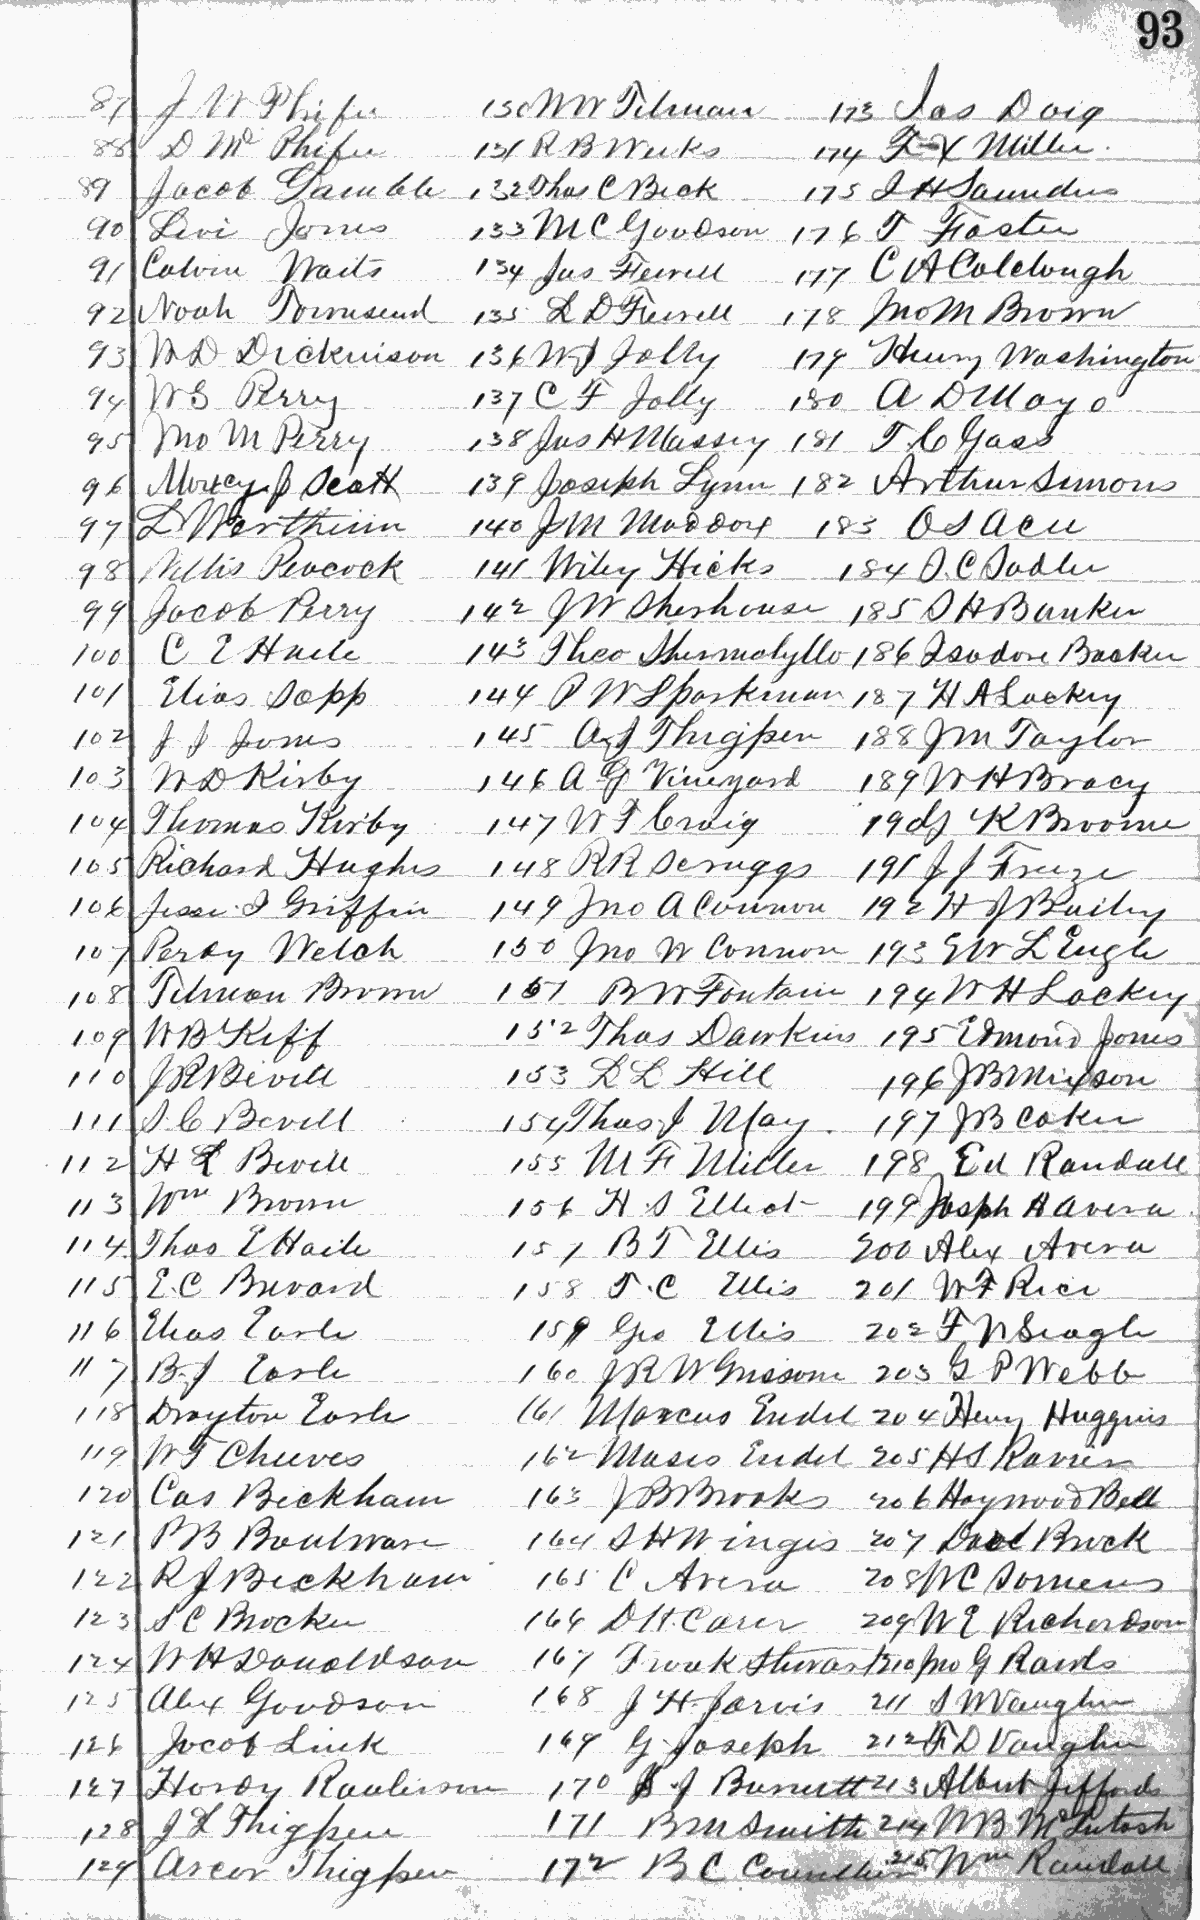 93
87 J W Phifer 130 W W Tilman 173 Jas Doig
88 D Mc Phifer 131 R B Weeks 174 F Y Miller
89 Jacob Gamble 132 Thos C Beck 175 J H Saunders
90 Levi Jones 133 M C Goodson 176 T Foster
91 Calvin Waits 134 Jas Ferrell 177 C A Colclough
92 Noah Townsend 135 L D Ferrell 178 Jno M Brown
93 W D Dickinson 136 W J Jolly 179 Henry Washington
94 W S Perry 137 C F Jolly 180 A D Mayo
95 Jno M Perry 138 Jas H Massey 181 T C Gass
96 J Scott 139 Joseph Lynn 182 Arthur Simons
97 L Wertheim 140 J M Maddox 183 O S
98 Willis Peacock 141 Wiley Hicks 184 O. C Sadler
99 Jacob Perry 142 J W Shorhouse 185 S H Bunker
100 C E Haile 143 Theo 186 Isadore Backer
101 Elias Sapp 144 P W Sparkman 187 H A Lackey
102 J J Jones 145 A J Thigpen 188 J M Taylor
103 W D Kirby 146 A G Vineyard 189 W H Bracy
104 Thomas Kirby 147 W F Craig 190 J K Broome
105 Richard Hughes 148 R R Scruggs 191 J J Freeze
106 Jesse J Griffin 149 Jno A Connon 192 H J Bailey
107 Perdy Welch 150 Jno W Connon 193 E W L Engle
108 Tilman Brown 151 B W Fontain 194 W H Lackey
109 W B Kiff 152 Thos Dawkins 195 Edmond Jones
110 J R Bevill 153 L L Hill 196 J B Mixson
111 S. C Bevill 154 Thos J May 197 J B Coker
112 H L Bevill 155 M F Miller 198 Ed Randall
113 Wm Brown 156 H S Elliot 199 Joseph H Avera
114 Thos E Haile 157 B T Ellis 200 Alex Avera
115 E. C Brevard 158 T. C Ellis 201 W F Rice
116 Elias Earle 159 Geo Ellis 202 F W Seagle
117 B. J Earle 160 J R W Grissom 203 G P Webb
118 Drayton Earle 161 Marcus Endel 204 Henry Huggins
119 W T Cheeves 162 Moses Endel 205 H S
120 Cas Beckham 163 J B Brooks 206 Haywood Bell
121 P B Boulware 164 S H Winges 207 Brock
122 R J Beckham 165 C Avera 208 W C Somers
123 S C Brocker 166 D H Carer 209 W E Richardson
124 W H Donaldson 167 Frank 210 Jno G Rawls
125 Alex Goodson 168 J H Jarvis 211 S W Vaughn
126 Jacob Link 169 G Joseph 212 F D Vaughn
127 Hardy Raulerson 170 J Burnett 213 Albert Jeffords
128 J L Thigpen 171 B M Smith 214 W B McIntosh
129 Thigpen 172 B C 215 Wm Randall